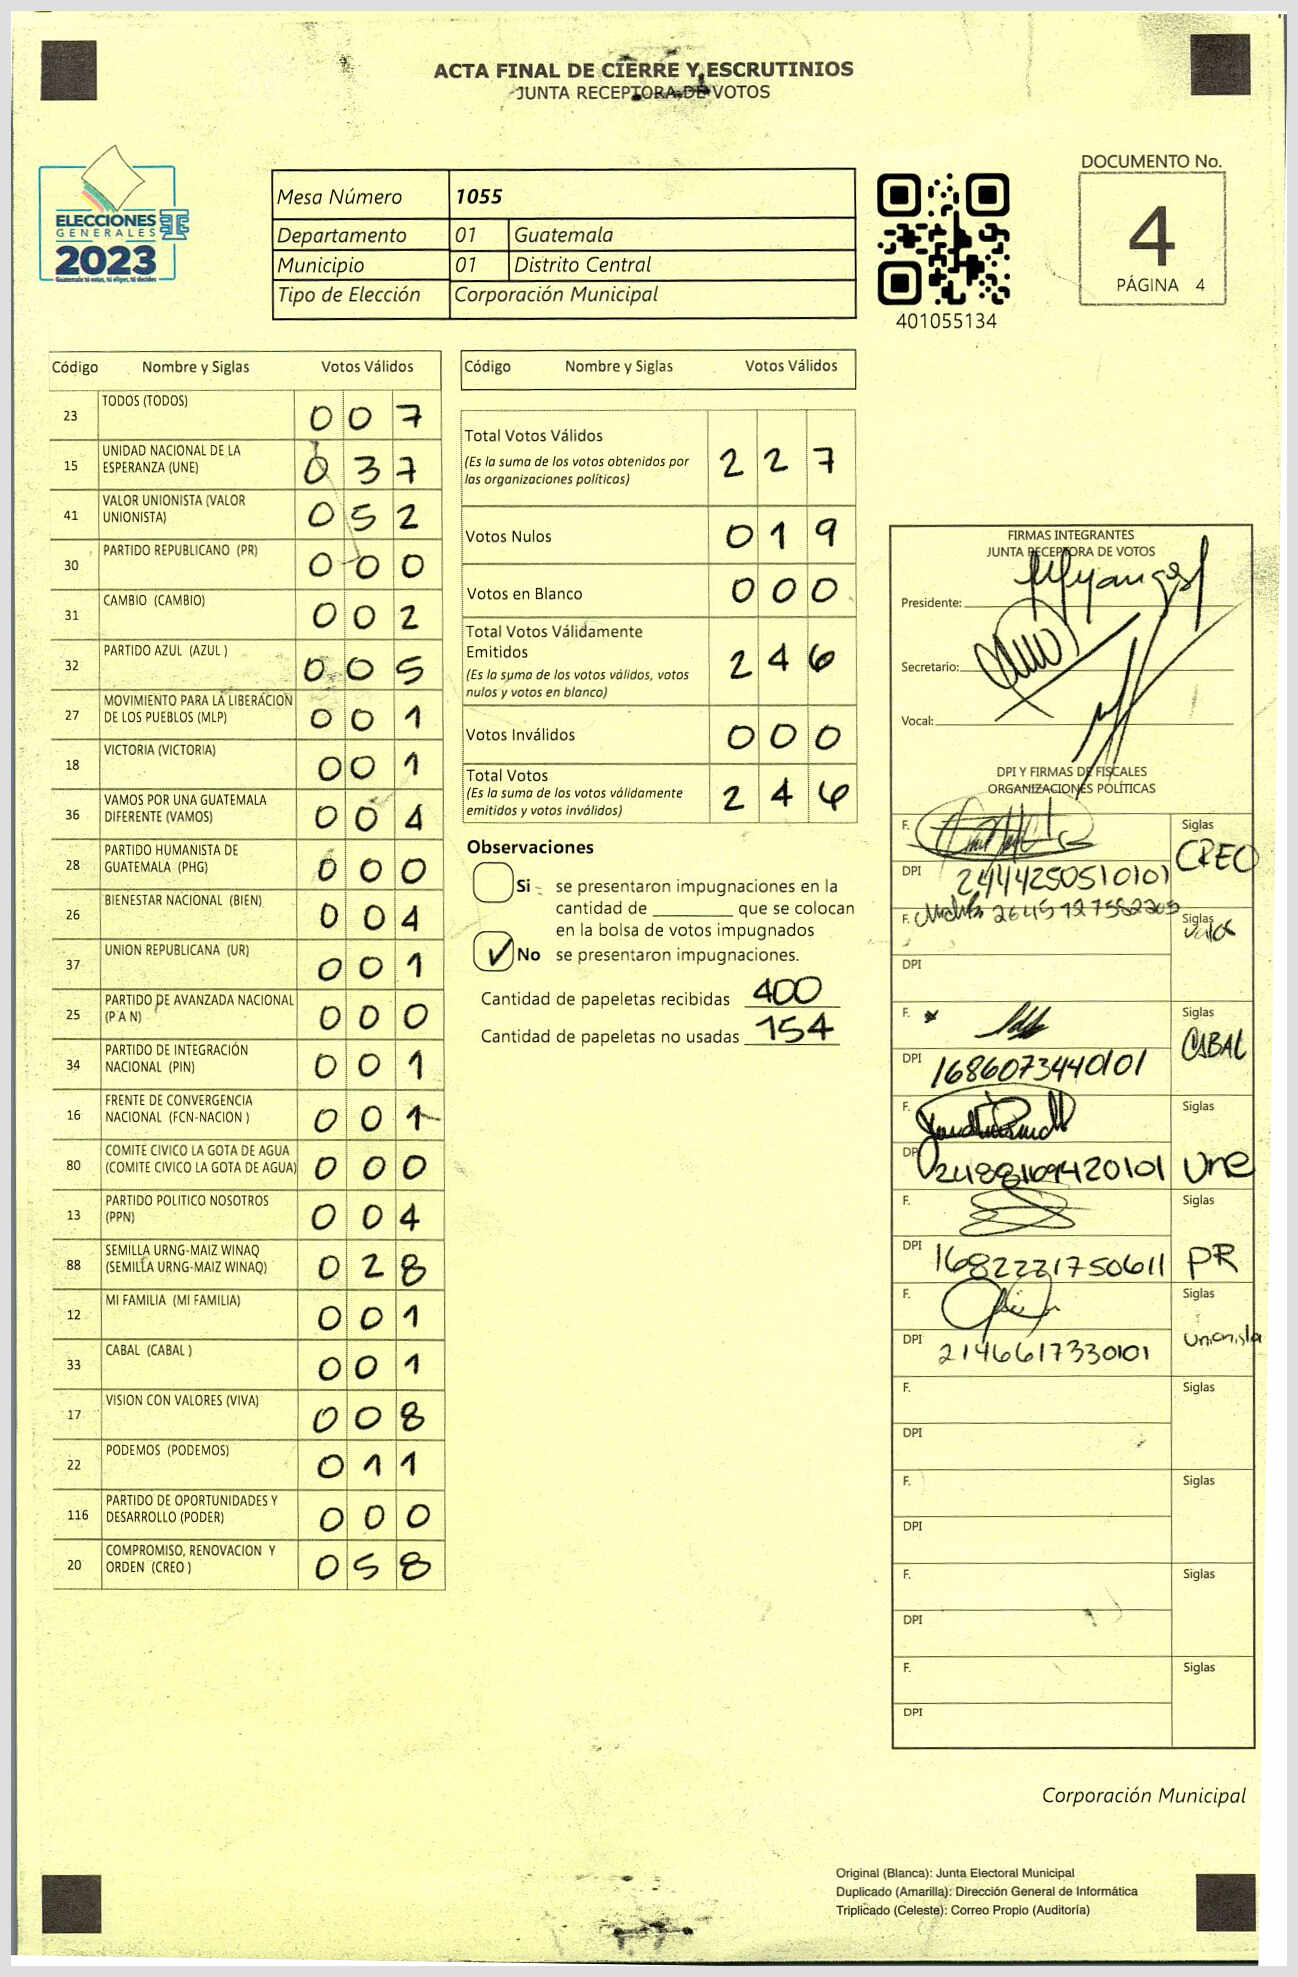 ACTA FINAL DE CIERRE Y ESCRUTINIOS
JUNTA RECEPTORA DE VOTOS
ELECCIONES
GENERALES
2023
Mesa Número 1055
Departamento 01 Guatemala
Municipio 01 Distrito Central
Tipo de Elección Corporación Municipal
401055134
DOCUMENTO No.
4
PÁGINA 4
Código Nombre y Siglas Votos Válidos
23 TODOS (TODOS) 0 0 7
15 UNIDAD NACIONAL DE LA ESPERANZA (UNE) 0 3 7
41 VALOR UNIONISTA (VALOR UNIONISTA) 0 5 2
30 PARTIDO REPUBLICANO (PR) 0 0 0
31 CAMBIO (CAMBIO) 0 0 2
32 PARTIDO AZUL (AZUL ) 0 0 5
27 MOVIMIENTO PARA LA LIBERACION DE LOS PUEBLOS (MLP) 0 0 1
18 VICTORIA (VICTORIA) 0 0 1
36 VAMOS POR UNA GUATEMALA DIFERENTE (VAMOS) 0 0 4
28 PARTIDO HUMANISTA DE GUATEMALA (PHG) 0 0 0
26 BIENESTAR NACIONAL (BIEN) 0 0 4
37 UNION REPUBLICANA (UR) 0 0 1
25 PARTIDO DE AVANZADA NACIONAL (P A N) 0 0 0
34 PARTIDO DE INTEGRACIÓN NACIONAL (PIN) 0 0 1
16 FRENTE DE CONVERGENCIA NACIONAL (FCN-NACION ) 0 0 1
80 COMITE CIVICO LA GOTA DE AGUA (COMITE CIVICO LA GOTA DE AGUA) 0 0 0
13 PARTIDO POLITICO NOSOTROS (PPN) 0 0 4
88 SEMILLA URNG-MAIZ WINAQ (SEMILLA URNG-MAIZ WINAQ) 0 2 8
12 MI FAMILIA (MI FAMILIA) 0 0 1
33 CABAL (CABAL ) 0 0 1
17 VISION CON VALORES (VIVA) 0 0 8
22 PODEMOS (PODEMOS) 0 1 1
116 PARTIDO DE OPORTUNIDADES Y DESARROLLO (PODER) 0 0 0
20 COMPROMISO, RENOVACION Y ORDEN (CREO ) 0 5 8
Código Nombre y Siglas Votos Válidos
Total Votos Válidos 2 2 7
(Es la suma de los votos obtenidos por
las organizaciones políticas)
Votos Nulos 0 1 9
Votos en Blanco 0 0 0
Total Votos Válidamente
Emitidos 2 4 6
(Es la suma de los votos válidos, votos
nulos y votos en blanco)
Votos Inválidos 0 0 0
Total Votos 2 4 6
(Es la suma de los votos válidamente
emitidos y votos inválidos)
Observaciones
Si se presentaron impugnaciones en la
cantidad de ________ que se colocan
en la bolsa de votos impugnados
✓ No se presentaron impugnaciones.
Cantidad de papeletas recibidas 400
Cantidad de papeletas no usadas 154
FIRMAS INTEGRANTES
JUNTA RECEPTORA DE VOTOS
Presidente:
Secretario:
Vocal:
DPI Y FIRMAS DE FISCALES
ORGANIZACIONES POLÍTICAS
F. Siglas
DPI 2444250510101 CREO
F. Siglas
DPI
F. Siglas
DPI 1686073440101 CABAL
F. Siglas
DPI Une
F. Siglas
DPI PR
F. Siglas
DPI 2146617330101 Unionista
F. Siglas
DPI
F. Siglas
DPI
F. Siglas
DPI
F. Siglas
DPI
Corporación Municipal
Original (Blanca): Junta Electoral Municipal
Duplicado (Amarilla): Dirección General de Informática
Triplicado (Celeste): Correo Propio (Auditoría)